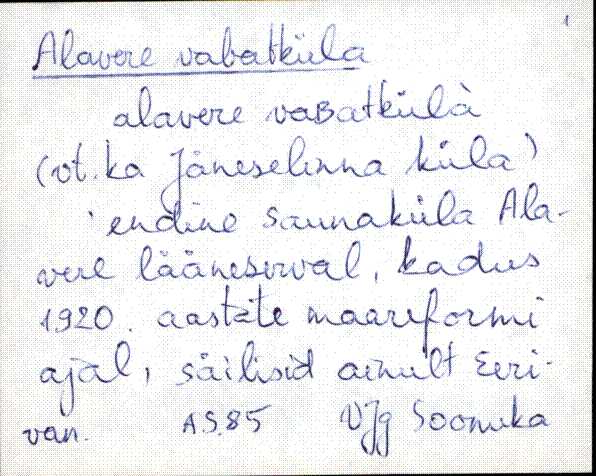 1
Alavere vabatküla
alavere vaʙatkülà
(vt. ka Jäneselinna küla)
endine saunaküla Ala-
vere lääneserval, kadus
1920. aastate maareformi
ajal, säilisid ainult Eeri-
van. A.S.85 VJg Soonuka